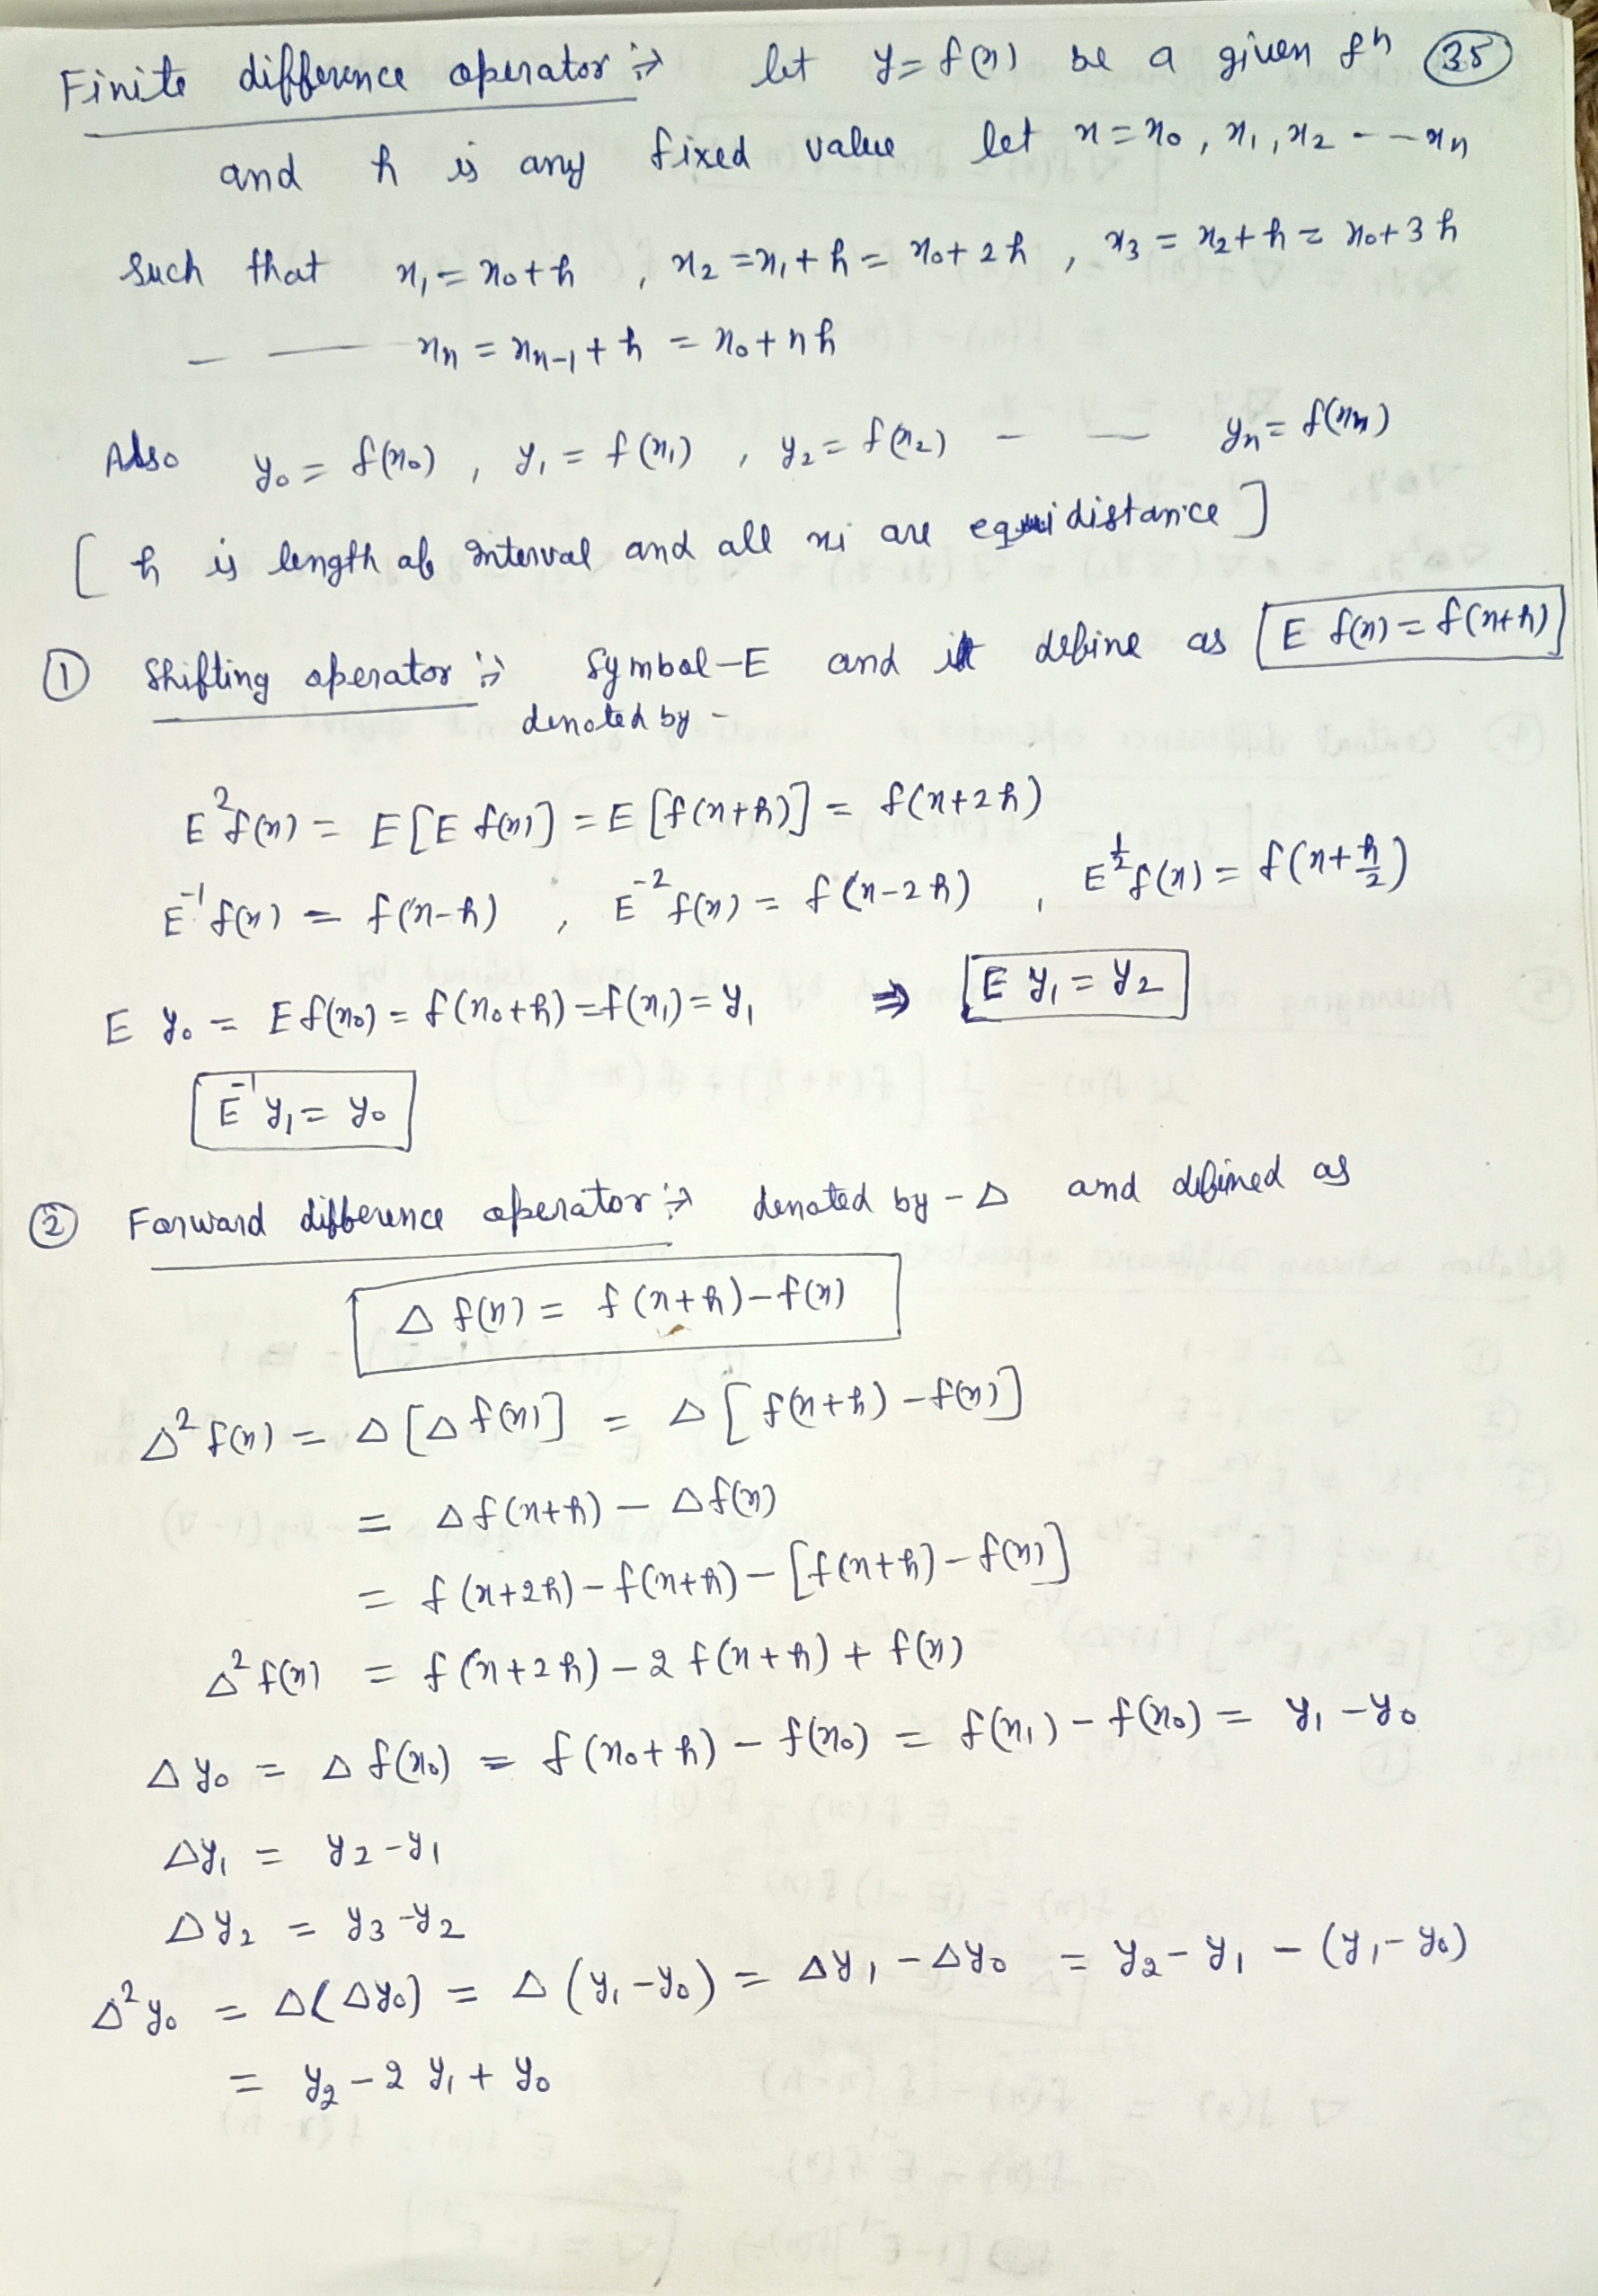 Finite difference operator :→ let y = f(x) be a given fn (35)
and h is any fixed value let x = x₀, x₁, x₂ - - xₙ
Such that x₁ = x₀+h , x₂ = x₁+h = x₀+2h , x₃ = x₂+h = x₀+3h
— — xₙ = xₙ₋₁+h = x₀+nh
Also y₀ = f(x₀) , y₁ = f(x₁) , y₂ = f(x₂) — — yₙ = f(xₙ)
[ h is length of interval and all xi are equidistance ]
① Shifting operator :→ Symbol - E and it define as E f(x) = f(x+h)
denoted by -
E²f(x) = E[E f(x)] = E[f(x+h)] = f(x+2h)
E⁻¹f(x) = f(x-h) , E⁻²f(x) = f(x-2h) , E^½ f(x) = f(x+h/2)
E y₀ = E f(x₀) = f(x₀+h) = f(x₁) = y₁ ⇒ E y₁ = y₂
E⁻¹y₁ = y₀
② Forward difference operator :→ denoted by - Δ and defined as
Δ f(x) = f(x+h) - f(x)
Δ²f(x) = Δ[Δf(x)] = Δ[f(x+h) - f(x)]
= Δf(x+h) - Δf(x)
= f(x+2h) - f(x+h) - [f(x+h) - f(x)]
Δ²f(x) = f(x+2h) - 2f(x+h) + f(x)
Δy₀ = Δf(x₀) = f(x₀+h) - f(x₀) = f(x₁) - f(x₀) = y₁ - y₀
Δy₁ = y₂ - y₁
Δy₂ = y₃ - y₂
Δ²y₀ = Δ(Δy₀) = Δ(y₁ - y₀) = Δy₁ - Δy₀ = y₂ - y₁ - (y₁ - y₀)
= y₂ - 2y₁ + y₀